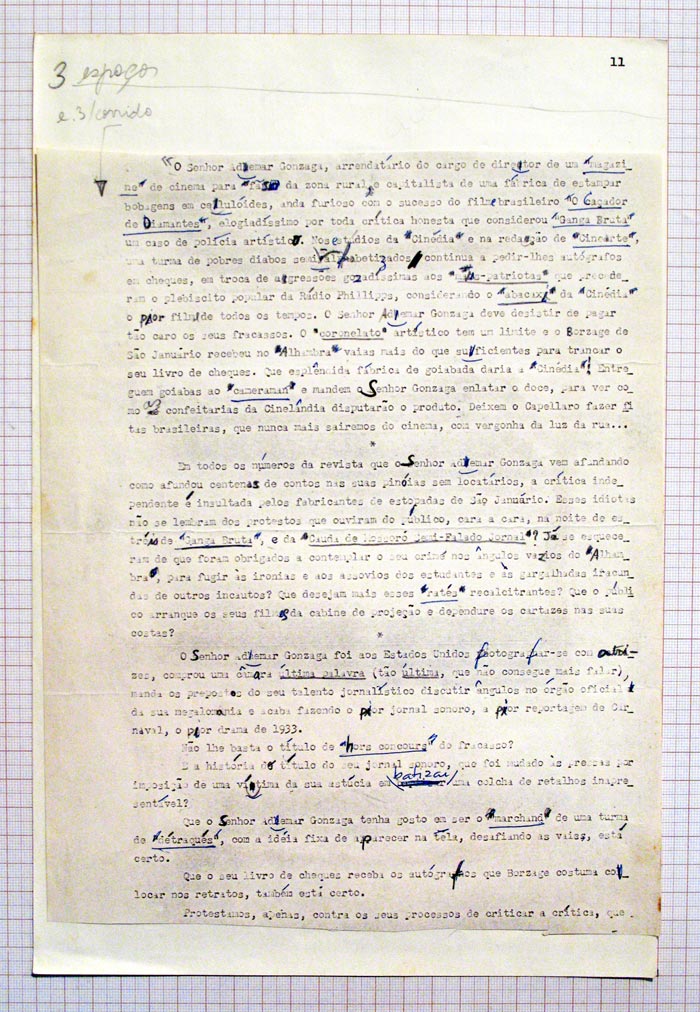 11
3 espaços
e. 3/corrido
"O Senhor Adhemar Gonzaga, arrendatário do cargo de diretor de um "magazi_
ne" de cinema para da zona rural, e capitalista de uma fábrica de estampar
bobagens em celulóides, anda furioso com o sucesso do filme brasileiro "O Caçador
de Diamantes", elogiadíssimo por toda crítica honesta que considerou "Ganga Bruta"
um caso de polícia artístico. Nos estúdios da "Cinédia" e na redação de "Cinearte",
uma turma de pobres diabos continua a pedir-lhes autógrafos
em cheques, em troca de agressões gozadíssimas aos que precede_
ram o plebiscito popular da Rádio Phillipps, considerando o "abacaxi" da "Cinédia"
o pior film de todos os tempos. O Senhor Adhemar Gonzaga deve desistir de pagar
tão caro os seus fracassos. O "coronelato" artístico tem um limite e o Borzage de
São Januário recebeu no "Alhambra" vaias mais do que suficientes para trancar o
seu livro de cheques. Que esplêndida fábrica de goiabada daria a "Cinédia"! Entre_
guem goiabas ao "cameraman" e mandem o Senhor Gonzaga enlatar o doce, para ver co_
mo as confeitarias da Cinelândia disputarão o produto. Deixem o Capellaro fazer fi_
tas brasileiras, que nunca mais sairemos do cinema, com vergonha da luz da rua...
*
Em todos os números da revista que o Senhor Adhemar Gonzaga vem afundando
como afundou centenas de contos nas suas pinóias sem locatários, a crítica inde_
pendente é insultada pelos fabricantes de estopadas de São Januário. Esses idiotas
não se lembram dos protestos que ouviram do público, cara a cara, na noite de es_
tréis de "Ganga Bruta", e da "Cauda de Mossoró Semi-Falado Jornal"? Já se esquece_
ram de que foram obrigados a contemplar o seu crime nos ângulos vazios do "Alham_
bra", para fugir às ironias e aos assovios dos estudantes e às gargalhadas iracun_
das de outros incautos? Que desejam mais esses "ratés" recalcitrantes? Que o públi_
co arranque os seus filmes da cabine de projeção e dependure os cartazes nas suas
costas?
*
O Senhor Adhemar Gonzaga foi aos Estados Unidos photografar-se com atri-
zes, comprou uma câmara última palavra (tão última, que não consegue mais falar),
manda os prepostos do seu talento jornalístico discutir ângulos no órgão oficial
da sua megalomania e acaba fazendo o pior jornal sonoro, a pior reportagem de Car_
naval, o pior drama de 1933.
Não lhe basta o título de "hors concours" do fracasso?
E a história do título do seu jornal sonoro, que foi mudado às pressas por
imposição de uma vítima da sua astúcia em batizar uma colcha de retalhos inapre_
sentável?
Que o Senhor Adhemar Gonzaga tenha gosto em ser o "marchand" de uma turma
de "détraqués", com a idéia fixa de aparecer na tela, desafiando as vaias, está
certo.
Que o seu livro de cheques receba os autógrafos que Borzage costuma co_
locar nos retratos, também está certo.
Protestamos, apenas, contra os seus processos de criticar a crítica, que